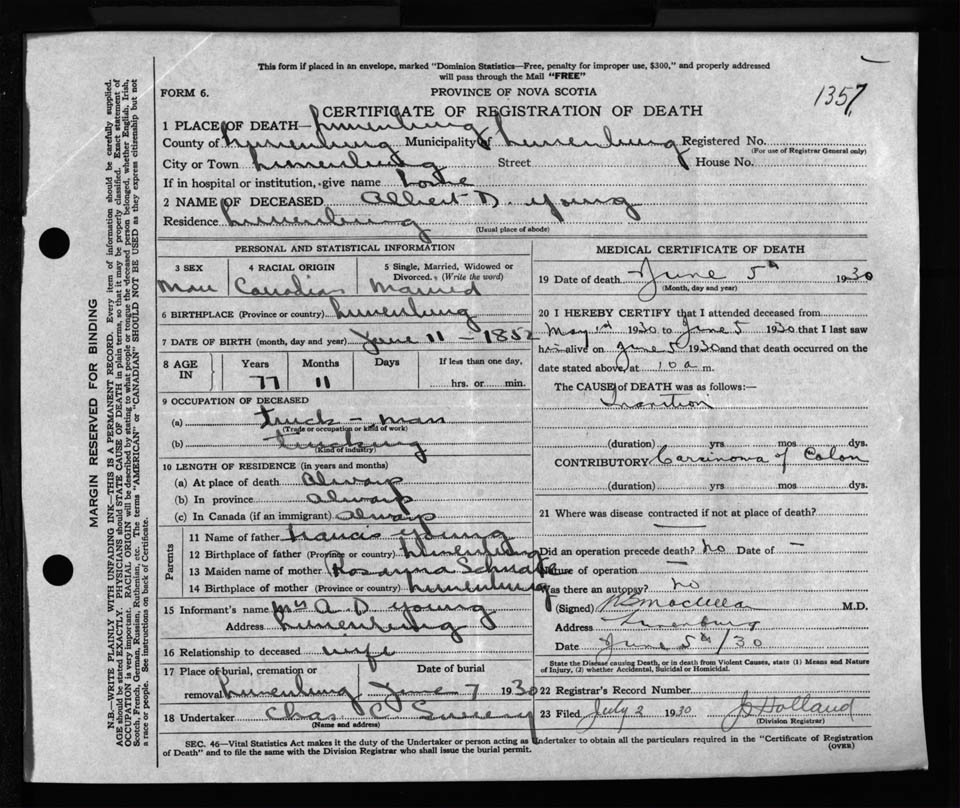 This form if placed in an envelope, marked "Dominion Statistics—Free, penalty for improper use, $300," and properly addressed
will pass through the Mail "FREE"
FORM 6.
PROVINCE OF NOVA SCOTIA
1357
CERTIFICATE OF REGISTRATION OF DEATH
1 PLACE OF DEATH— Lunenburg
County of Lunenburg Municipality of Lunenburg Registered No.
(For use of Registrar General only)
City or Town Lunenburg Street House No.
If in hospital or institution, give name
2 NAME OF DECEASED Albert D. Young
Residence Lunenburg
(Usual place of abode)
PERSONAL AND STATISTICAL INFORMATION
3 SEX 4 RACIAL ORIGIN 5 Single, Married, Widowed or Divorced. (Write the word)
Canadian Married
6 BIRTHPLACE (Province or country) Lunenburg
7 DATE OF BIRTH (month, day and year) June 11 - 1852
8 AGE IN Years Months Days If less than one day,
77 11 hrs. or min.
9 OCCUPATION OF DECEASED
(a) truck-man
(Trade or occupation or kind of work)
(b) trucking
(Kind of industry)
10 LENGTH OF RESIDENCE (in years and months)
(a) At place of death Always
(b) In province Always
(c) In Canada (if an immigrant) Always
Parents
11 Name of father Francis Young
12 Birthplace of father (Province or country) Lunenburg
13 Maiden name of mother Rosanna
14 Birthplace of mother (Province or country) Lunenburg
15 Informant's name Mrs A. D. Young
Address Lunenburg
16 Relationship to deceased wife
17 Place of burial, cremation or Date of burial
removal Lunenburg June 7 1930
18 Undertaker Chas C
(Name and address)
MEDICAL CERTIFICATE OF DEATH
19 Date of death June 5th 1930
(Month, day and year)
20 I HEREBY CERTIFY that I attended deceased from
May 1st 1930 to June 5 1930 that I last saw
him alive on June 5 1930 and that death occurred on the
date stated above, at 10 a m.
The CAUSE of DEATH was as follows:—
Inanition
(duration) yrs mos dys.
CONTRIBUTORY Carcinoma of Colon
(duration) yrs. mos. dys.
21 Where was disease contracted if not at place of death?
Did an operation precede death? No Date of —
Nature of operation —
Was there an autopsy? No
(Signed) M.D.
Address Lunenburg
Date June 5th/30
State the Disease causing Death, or in death from Violent Causes, state (1) Means and Nature
of Injury, (2) whether Accidental, Suicidal or Homicidal.
22 Registrar's Record Number
23 Filed July 2 1930 Holland
(Division Registrar)
SEC. 46—Vital Statistics Act makes it the duty of the Undertaker or person acting as Undertaker to obtain all the particulars required in the "Certificate of Registration
of Death" and to file the same with the Division Registrar who shall issue the burial permit. (OVER)
MARGIN RESERVED FOR BINDING
N.B.—WRITE PLAINLY WITH UNFADING INK—THIS IS A PERMANENT RECORD. Every item of information should be carefully supplied.
AGE should be stated EXACTLY. PHYSICIANS should STATE CAUSE OF DEATH in plain terms, so that it may be properly classified. Exact statement of
OCCUPATION is very important. RACIAL ORIGIN will be described by stating to what people or tongue the deceased person belonged, whether English, Irish,
Scotch, French, German, Russian, Ruthenian, etc. The terms "AMERICAN" or "CANADIAN" SHOULD NOT BE USED as they express citizenship but not
a race or people. See instructions on back of Certificate.